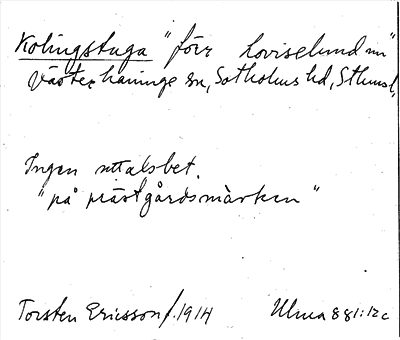 Kolingstuga "förr Loviselund nu"
Västerhaninge sn, Sotholms hd, Sthms l.
Ingen uttalsbet.
"på prästgårdsmarken"
Torsten Ericsson f. 1914 Ulma 881:12c